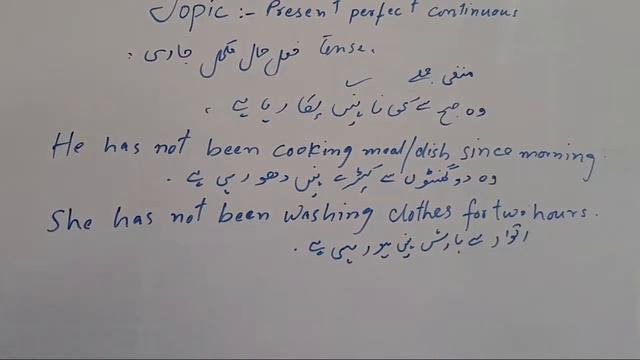 Topic :- Present perfect continuous
Tense. فعل حال مکمل جاری .
منفی جملے
وہ صبح سے کھانا نہیں پکا رہا ہے .
He has not been cooking meal/dish since morning.
وہ دو گھنٹوں سے کپڑے نہیں دھو رہی ہے .
She has not been washing clothes for two hours.
اتوار سے بارش نہیں ہو رہی ہے .